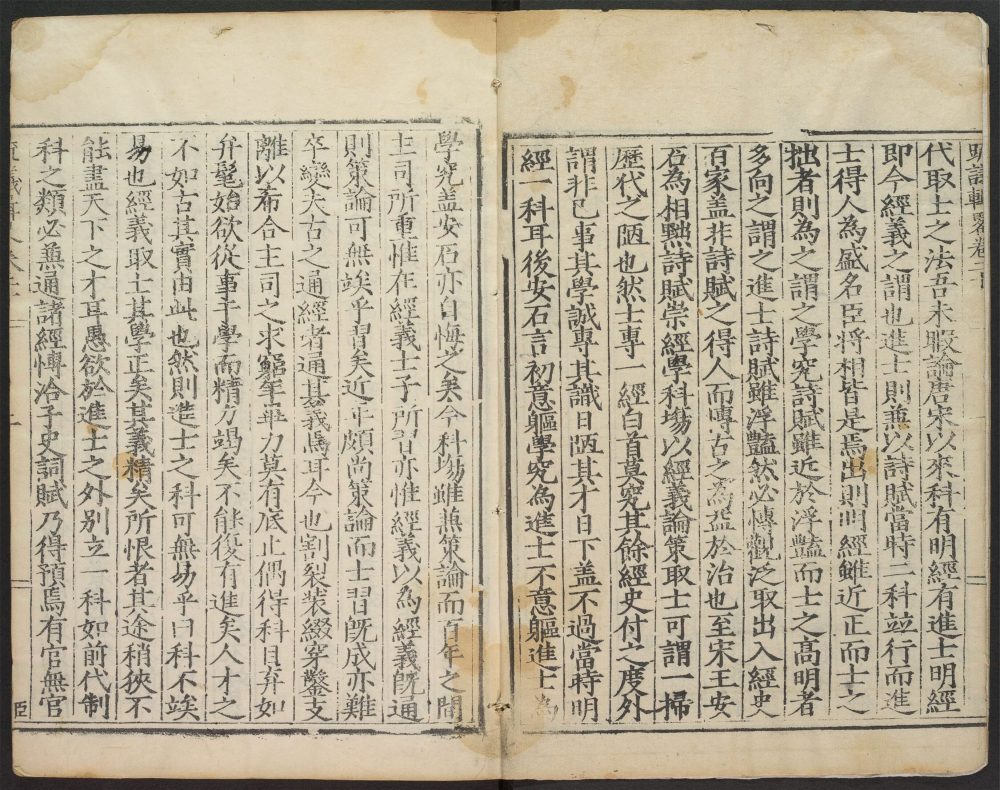 代取士之法吾未暇論唐宋以來科有明經有進士明經
即今經義之謂也進士則兼以詩賦當時二科並行而進
士得人為盛名臣將相皆是焉出則明經雖近正而士之
拙者則為之謂之學究詩賦雖近於浮豔而士之高明者
多向之謂之進士詩賦雖浮豔然必博觀泛取出入經史
百家盖非詩賦之得人而博古之為益於治也至宋王安
石為相黜詩賦崇經學科場以經義論策取士可謂一掃
歷代之陋也然士專一經白首莫究其餘經史付之度外
謂非己事其學誠專其識日陋其才日下盖不過當時明
經一科耳後安石言初意驅學究為進士不意驅進士為
學究盖安石亦自悔之矣今科場雖兼策論而百年之間
主司所重惟在經義士子所習亦惟經義以為經義既通
則策論可無竢乎習矣近年頗尚策論而士習既成亦難
卒變夫古之通經者通其義焉耳今也割裂裝綴穿鑿支
離以希合主司之求窮年畢力莫有底止偶得科目弃如
弁髦始欲從事于學而精力竭矣不能復有進矣人才之
不如古其實由此也然則進士之科可無易乎曰科不竢
易也經義取士其學正矣其義精矣所恨者其途稍狹不
能盡天下之才耳愚欲於進士之外別立一科如前代制
科之類必兼通諸經博洽子史詞賦乃得預焉有官無官
臣